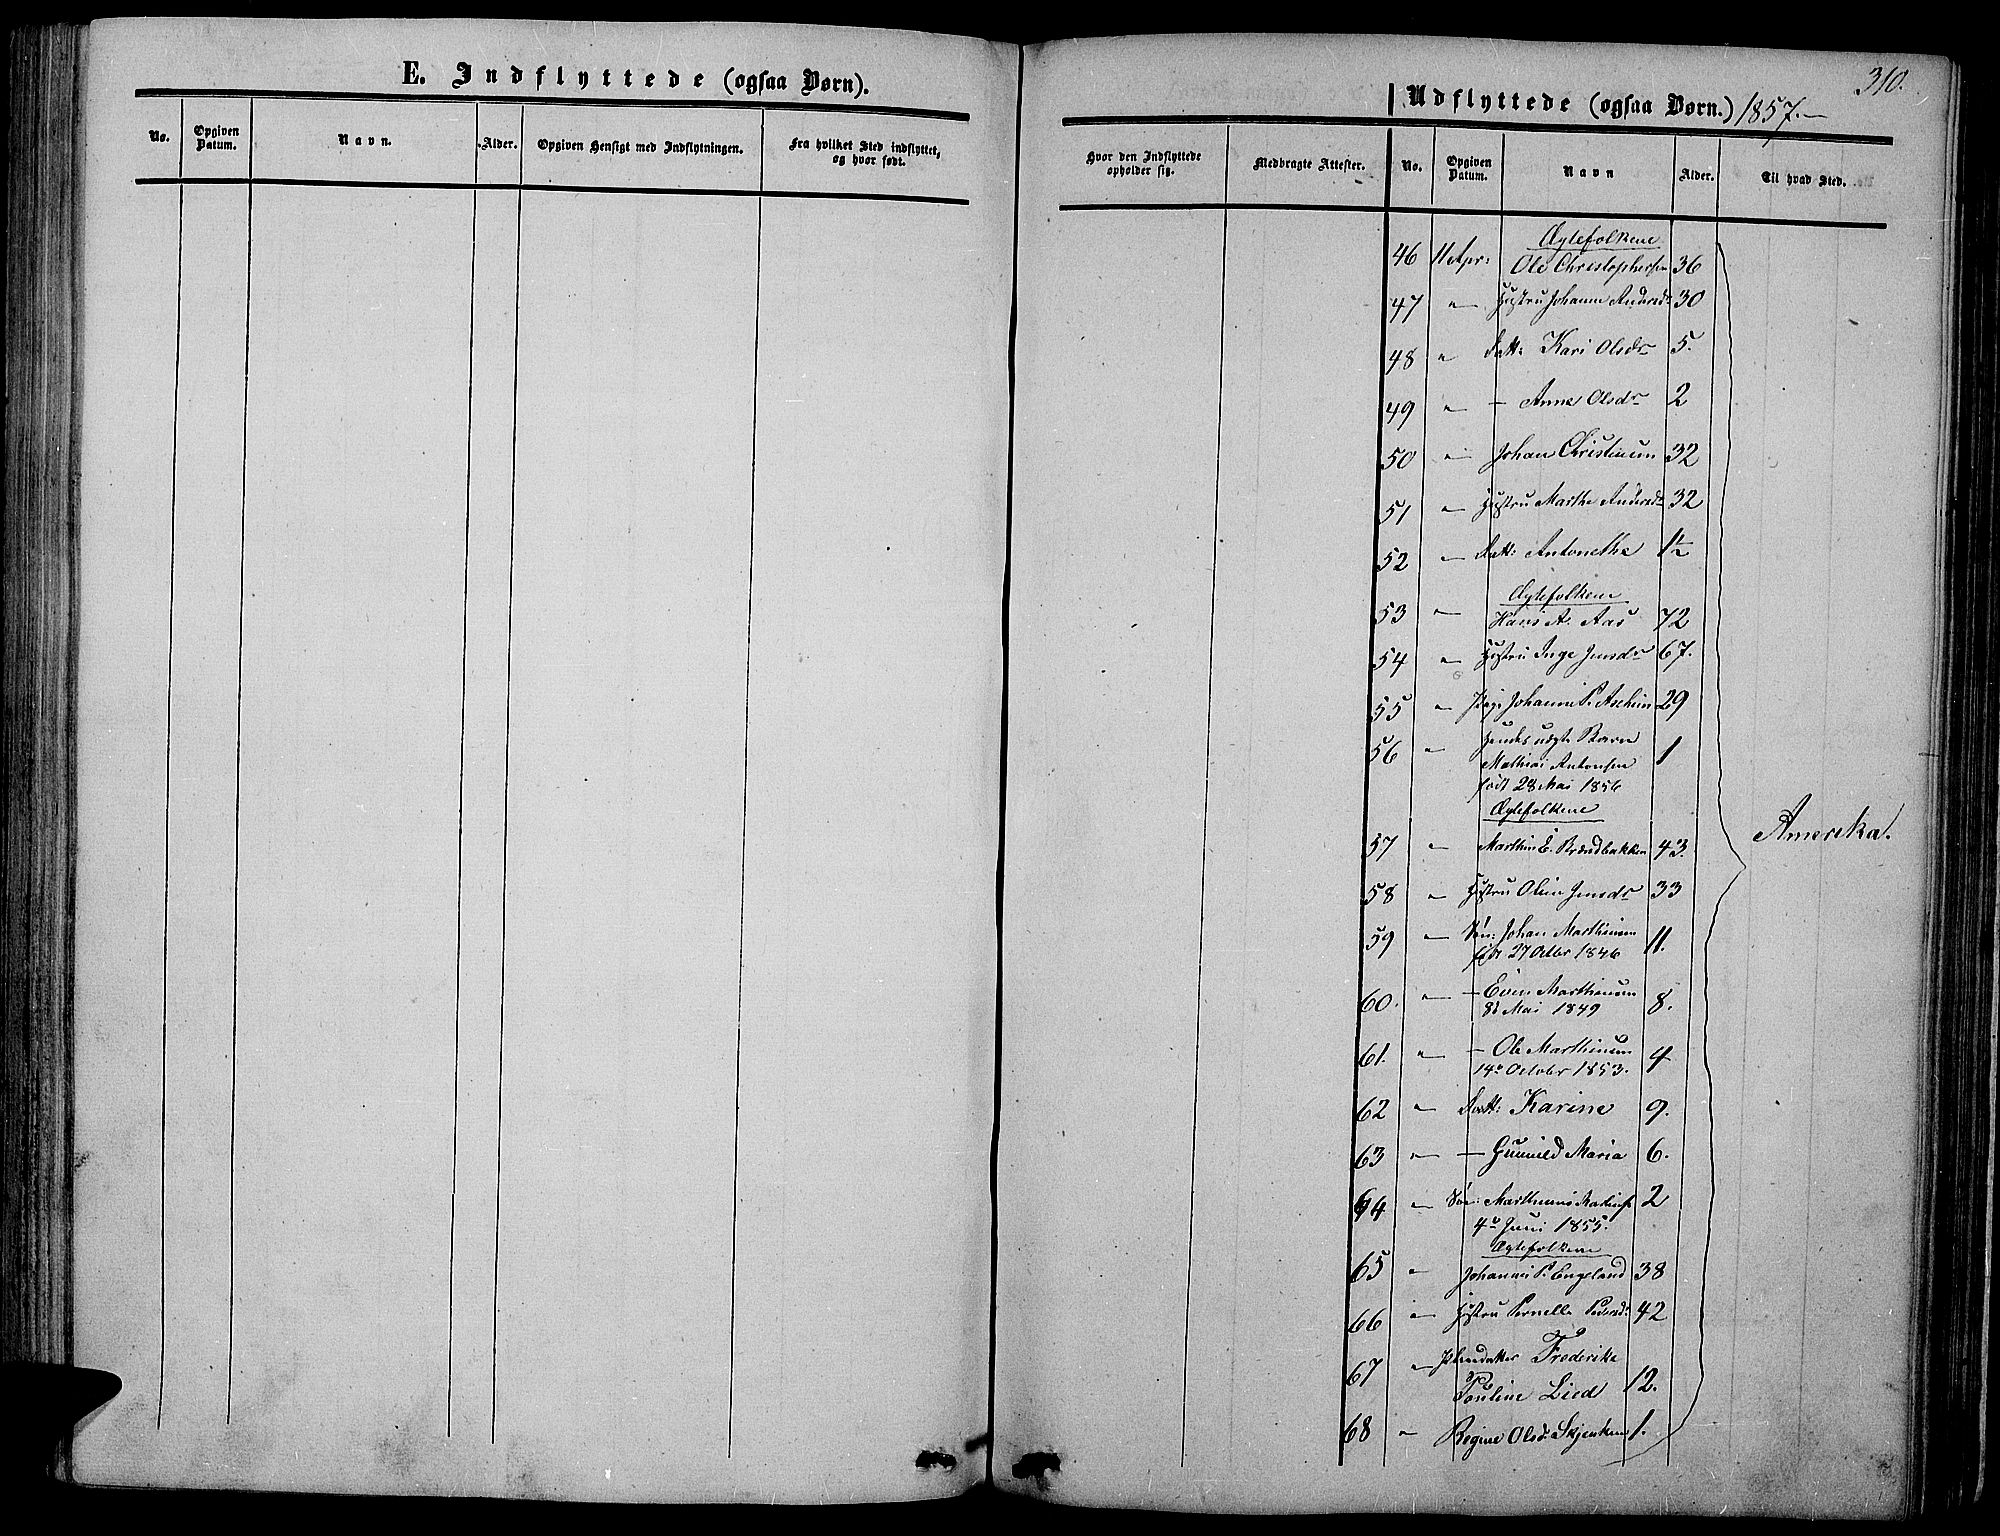 310.
E. Indflyttede (ogsaa Børn).
No.
Opgiven Datum.
Navn.
Alder.
Opgiven Hensigt med Indflytningen.
Fra hvilket Sted indflyttet, og hvor født.
Udflyttede (ogsaa Børn.) 1857.—
Hvor den Indflyttede opholder sig.
Medbragte Attester.
No.
Opgiven Datum.
Navn
Alder.
Til hvad Sted.
Ægtefolkene
46 11 Apr: Ole Christophersen 36
47 " Hustru Johanne Andersdr 30
48 " Datt: Kari Olsdr 5.
49 " — Anne Olsdr 2
50 " Johan Christiansen 32
51 " Hustru Marthe Andersdr 32
52 " Datt: Antonethe 1½
Ægtefolkene
53 " Hans A. Aas 72
54 " Hustru Inge Jensdr 67.
55 " Pige Johanne P. Ascheim 29
56 " Hendes uægte Barn 1
Mathias Antonsen
født 28 Mai 1856
Ægtefolkene
57 " Marthin E. Brændbakken 43.
58 " Hustru Oline Jensdr 33
59 " Søn: Johan Marthinsen 11.
født 27 Octbr 1846
60. " — Even Marthinsen 8.
8d Mai 1849
61. " — Ole Marthinsen 4
14de October 1853.
62 " Datt: Karine 9.
63 " — Gunild Maria 6.
64 " Søn: Marthinus 2
4de Juni 1855.
Ægtefolkene
65 " Johannes P. Engeland 38
66 " Hustru Pernelle Pedersdr 42
67 " Pleiedatter Frederike
Pouline Lied 12.
68 " Regine Olsd. Skjenken 1.
Amerika.